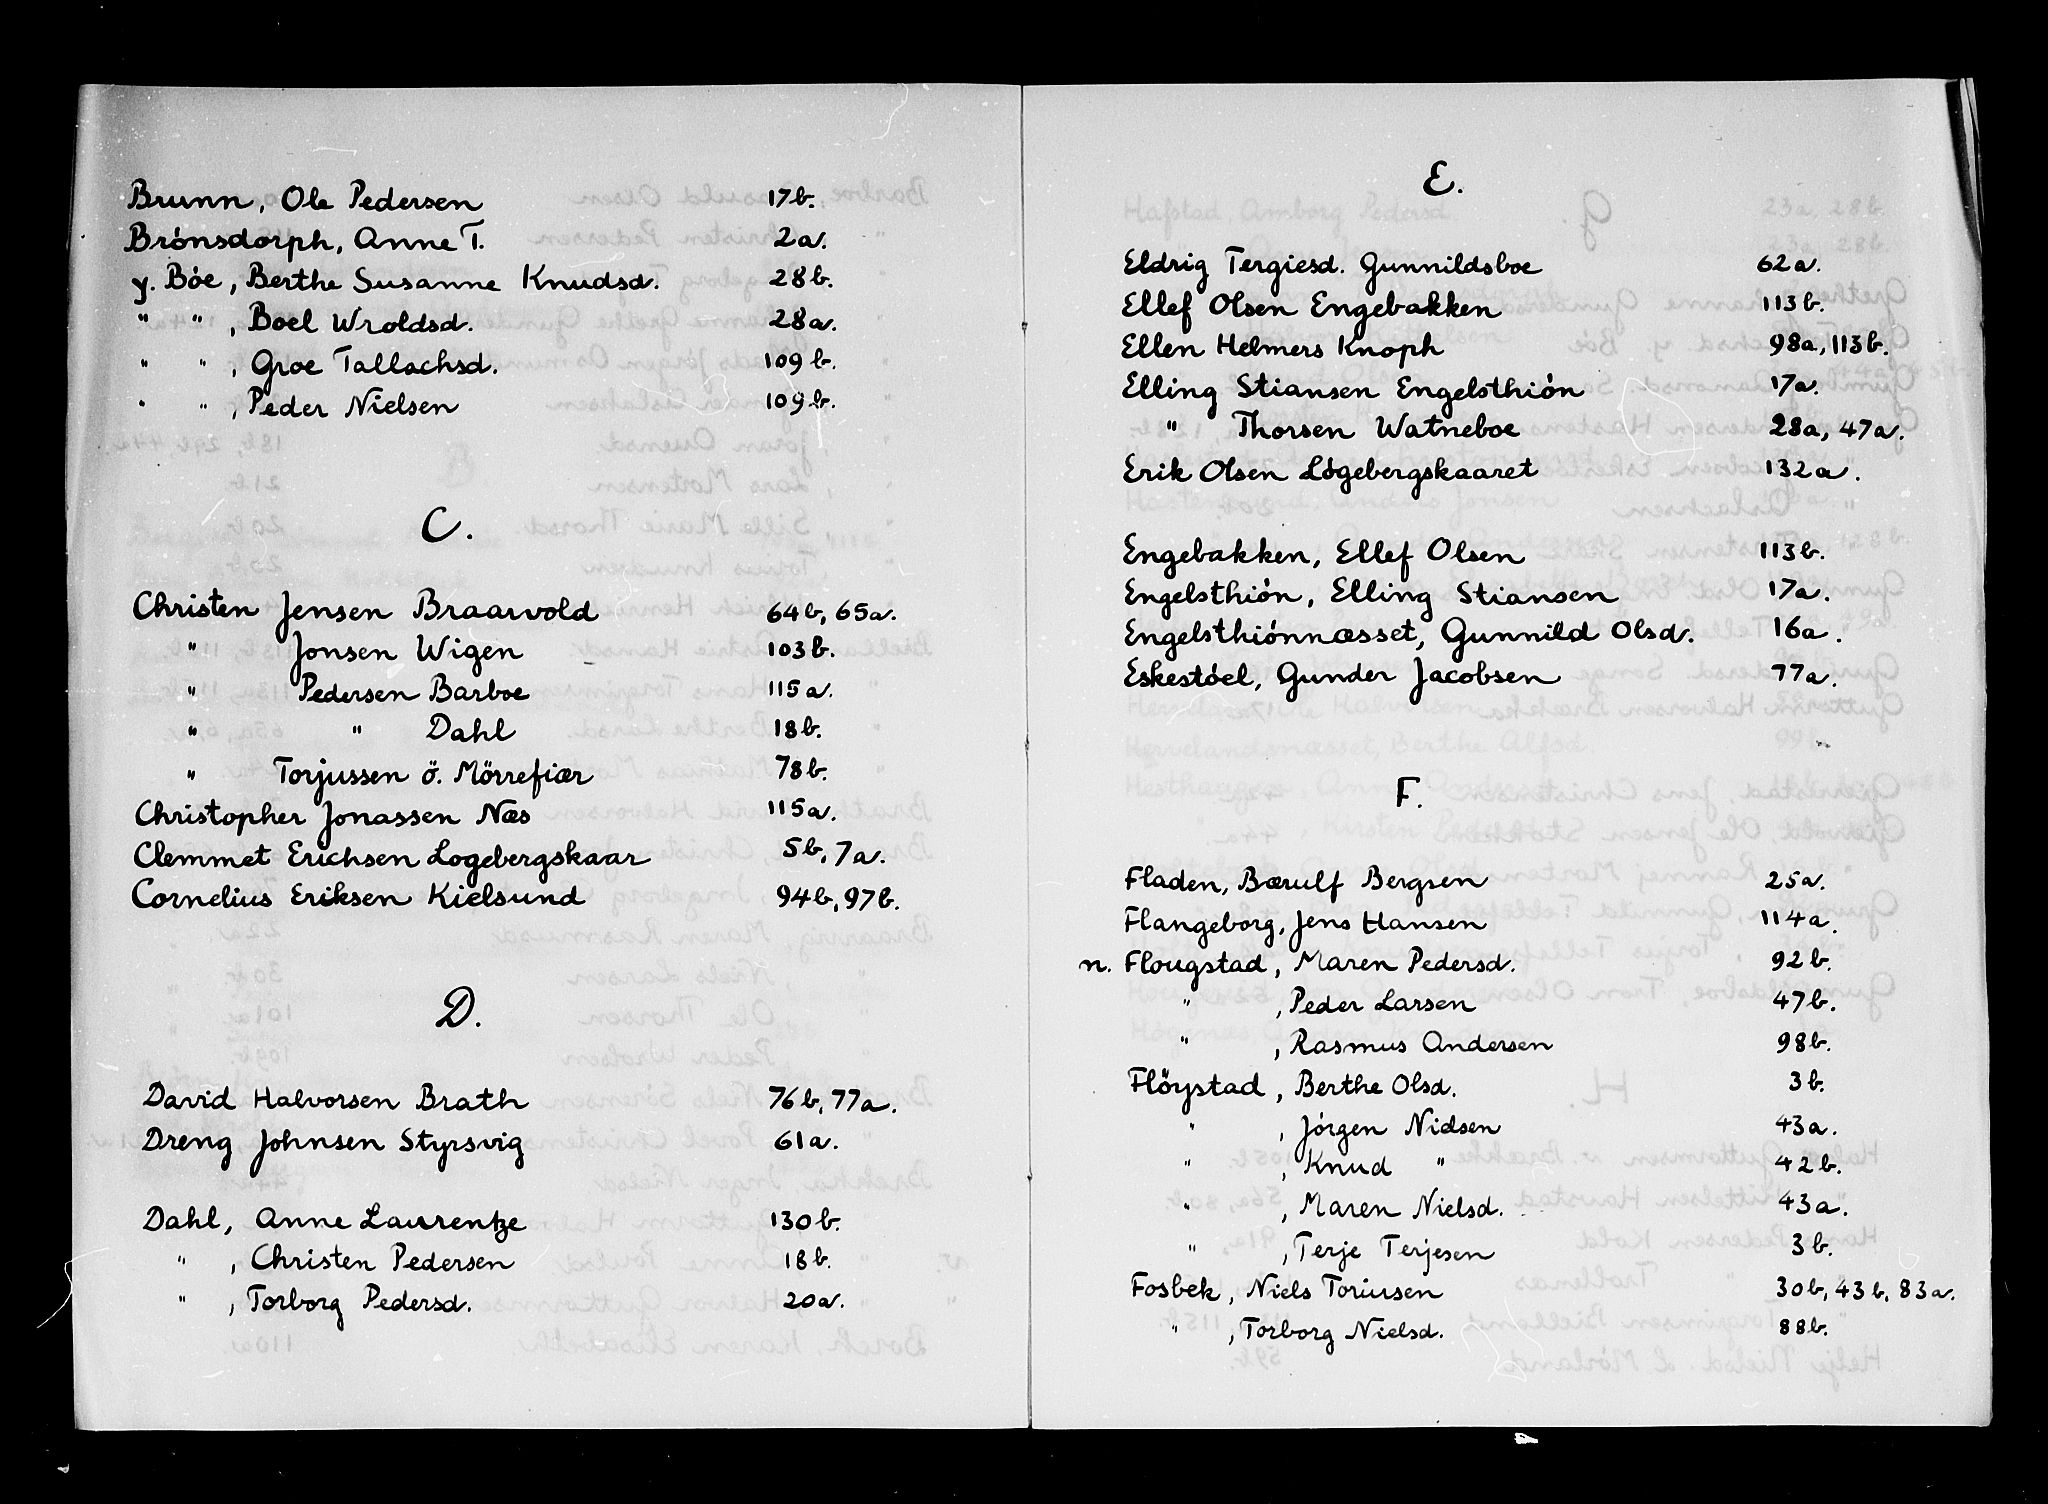 Brunn, Ole Pedersen 17b.
Brónsdorph, Anne T. 2a.
y. Bóe, Berthe Susanne Knudsd. 28b.
" " , Boel Wroldsd. 28a.
" " , Groe Tallachsd. 109b.
" " , Peder Nielsen 109b.
C.
Christen Jensen Braarvold 64b, 65a.
" Jonsen Wigen 103b.
" Pedersen Barboe 115a.
" " Dahl 18b.
" Torjussen ö. Mörrefiær 78b.
Christopher Jonassen Næs 115a.
Clemmet Erichsen Logebergskaar 5b, 7a.
Cornelius Eriksen Kielsund 94b, 97b.
D.
David Halvorsen Brath 76b, 77a.
Dreng Johnsen Styrsvig 61a.
Dahl, Anne Laurentze 130b.
" , Christen Pedersen 18b.
" , Torborg Pedersd. 20a.
E.
Eldrig Tergiesd. Gunnildsboe 62a.
Ellef Olsen Engebakken 113b.
Ellen Helmers Knoph 98a, 113b.
Elling Stiansen Engelsthión 17a.
" Thorsen Watneboe 28a, 47a.
Erik Olsen Lógebergskaaret 132a.
Engebakken, Ellef Olsen 113b.
Engelsthión, Elling Stiansen 17a.
Engelsthiónnæsset, Gunnild Olsd. 16a.
Eskestóel, Gunder Jacobsen 77a.
F.
Fladen, Bærulf Bergsen 25a.
Flangeborg, Jens Hansen 114a.
n. Flougstad, Maren Pedersd. 92b.
" , Peder Larsen 47b.
" , Rasmus Andersen 98b.
Flöystad, Berthe Olsd. 3b.
" , Jórgen Nidsen 43a.
" , Knud " 42b.
" , Maren Nielsd. 43a.
" , Terje Terjesen 3b.
Fosbek, Niels Toriusen 30b, 43b, 83a.
" , Torborg Nielsd. 88b.